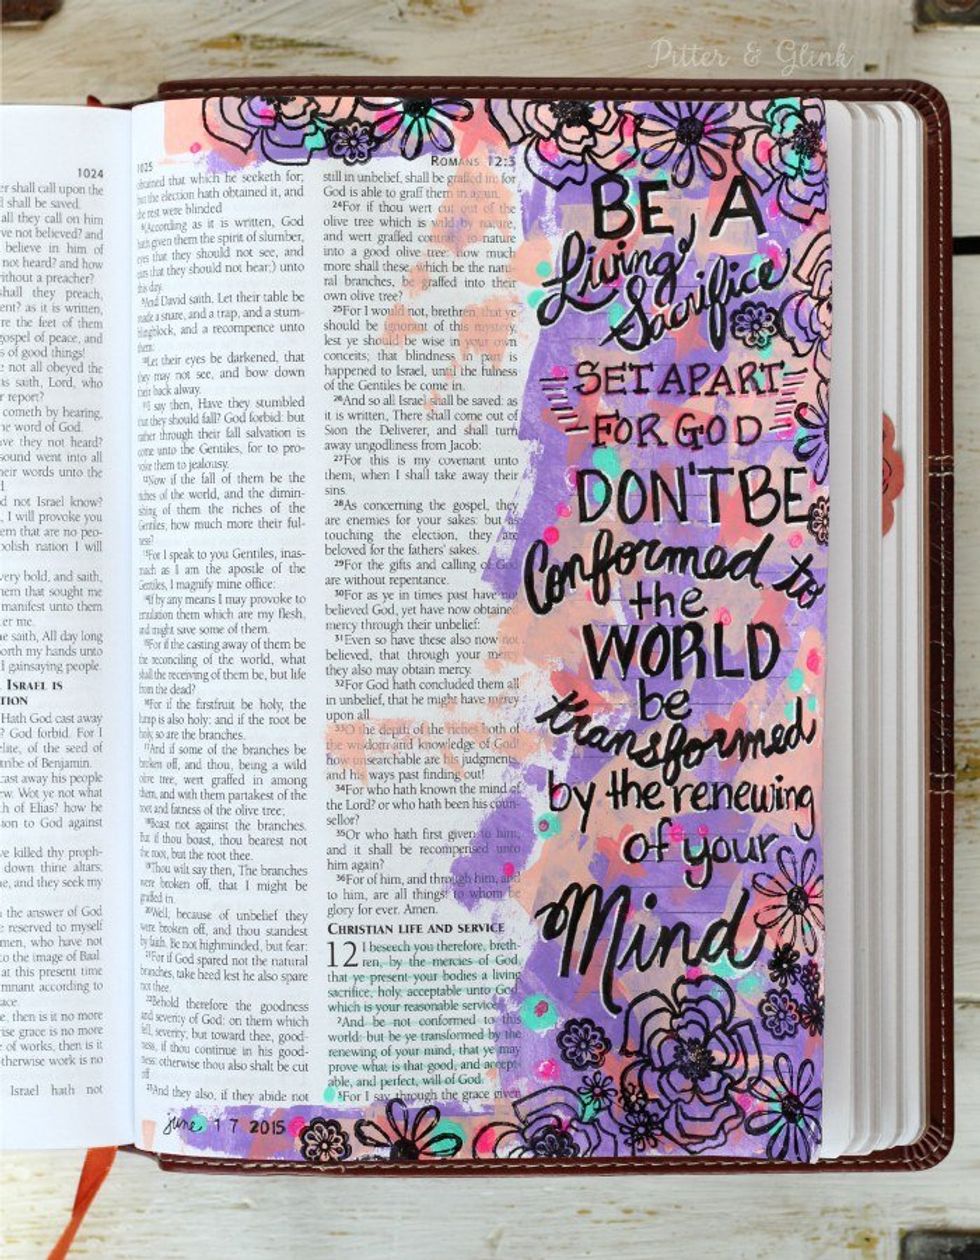 Pitter & Glink
1024
er shall call upon the
l shall be saved.
all they call on him
ve not believed? and
believe in him of
not heard? and how
ithout a preacher?
shall they preach,
ent? as it is written,
re the feet of them
gospel of peace, and
s of good things!
e not all obeyed the
as saith, Lord, who
r report?
cometh by hearing,
he word of God.
ve they not heard?
sound went into all
heir words unto the
d not Israel know?
, I will provoke you
em that are no peo-
oolish nation I will
very bold, and saith,
hem that sought me
manifest unto them
er me.
e saith, All day long
orth my hands unto
l gainsaying people.
ISRAEL IS
TION
Hath God cast away
? God forbid. For I
lite, of the seed of
tribe of Benjamin.
cast away his people
w. Wot ye not what
h of Elias? how he
ion to God against
ve killed thy proph-
down thine altars;
e, and they seek my
the answer of God
e reserved to myself
men, who have not
to the image of Baal.
at this present time
mnant according to
ace.
e, then is it no more
ise grace is no more
of works, then is it
therwise work is no
Israel hath not
1025
obtained that which he seeketh for;
but the election hath obtained it, and
the rest were blinded
According as it is written, God
hath given them the spirit of slumber,
eyes that they should not see, and
ears that they should not hear;) unto
this day.
And David saith, Let their table be
made a snare, and a trap, and a stum-
blingblock, and a recompence unto
them:
Let their eyes be darkened, that
they may not see, and bow down
their back alway.
I say then, Have they stumbled
that they should fall? God forbid: but
rather through their fall salvation is
come unto the Gentiles, for to pro-
voke them to jealousy.
Now if the fall of them be the
riches of the world, and the dimin-
ishing of them the riches of the
Gentiles; how much more their ful-
ness?
For I speak to you Gentiles, inas-
much as I am the apostle of the
Gentiles, I magnify mine office:
If by any means I may provoke to
emulation them which are my flesh,
and might save some of them.
For if the casting away of them be
the reconciling of the world, what
shall the receiving of them be, but life
from the dead?
For if the firstfruit be holy, the
lump is also holy: and if the root be
holy, so are the branches.
And if some of the branches be
broken off, and thou, being a wild
olive tree, wert graffed in among
them, and with them partakest of the
root and fatness of the olive tree;
Boast not against the branches.
But if thou boast, thou bearest not
the root, but the root thee.
Thou wilt say then, The branches
were broken off, that I might be
graffed in.
Well; because of unbelief they
were broken off, and thou standest
by faith. Be not highminded, but fear:
For if God spared not the natural
branches, take heed lest he also spare
not thee.
22Behold therefore the goodness
and severity of God: on them which
fell, severity; but toward thee, good-
ness, if thou continue in his good-
ness: otherwise thou also shalt be cut
off.
23And they also, if they abide not
june 17 2015
ROMANS 12:3
still in unbelief, shall be graffed in: for
God is able to graff them in again.
24For if thou wert cut out of the
olive tree which is wild by nature,
and wert graffed contrary to nature
into a good olive tree: how much
more shall these, which be the natu-
ral branches, be graffed into their
own olive tree?
25For I would not, brethren, that ye
should be ignorant of this mystery,
lest ye should be wise in your own
conceits; that blindness in part is
happened to Israel, until the fulness
of the Gentiles be come in.
26And so all Israel shall be saved: as
it is written, There shall come out of
Sion the Deliverer, and shall turn
away ungodliness from Jacob:
27For this is my covenant unto
them, when I shall take away their
sins.
28As concerning the gospel, they
are enemies for your sakes: but as
touching the election, they are
beloved for the fathers' sakes.
29For the gifts and calling of God
are without repentance.
30For as ye in times past have not
believed God, yet have now obtained
mercy through their unbelief:
31Even so have these also now not
believed, that through your mercy
they also may obtain mercy.
32For God hath concluded them all
in unbelief, that he might have mercy
upon all.
33O the depth of the riches both of
the wisdom and knowledge of God!
how unsearchable are his judgments,
and his ways past finding out!
34For who hath known the mind of
the Lord? or who hath been his coun-
sellor?
35Or who hath first given to him,
and it shall be recompensed unto
him again?
36For of him, and through him, and
to him, are all things: to whom be
glory for ever. Amen.
CHRISTIAN LIFE AND SERVICE
12 I beseech you therefore, breth-
ren, by the mercies of God,
that ye present your bodies a living
sacrifice, holy, acceptable unto God,
which is your reasonable service.
2And be not conformed to this
world: but be ye transformed by the
renewing of your mind, that ye may
prove what is that good, and accept-
able, and perfect, will of God.
3For I say, through the grace given
BE A
Living
Sacrifice
SET APART
FOR GOD
DON'T BE
Conformed to
the
WORLD
be
transformed
by the renewing
of your
Mind